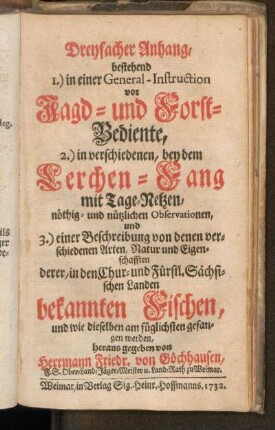 Dreyfacher Anhang,
bestehend
1.) in einer General-Instruction
vor
Jagd- und Forst-
Bediente,
2.) in verschiedenen, bey dem
Lerchen-Fang
mit Tage-Netzen,
nöthig- und nützlichen Observationen,
und
3.) einer Beschreibung von denen ver-
schiedenen Arten, Natur und Eigen-
schafften
derer, in den Chur- und Fürstl. Sächsi-
schen Landen
bekannten Fischen,
und wie dieselben am füglichsten gefan-
gen werden,
heraus gegeben von
Herrmann Friedr. von Göchhausen,
F. S. Ober-Land-Jäger-Meister u. Land-Rath zu Weimar.
Weimar, in Verlag Sig. Heinr. Hoffmanns. 1732.